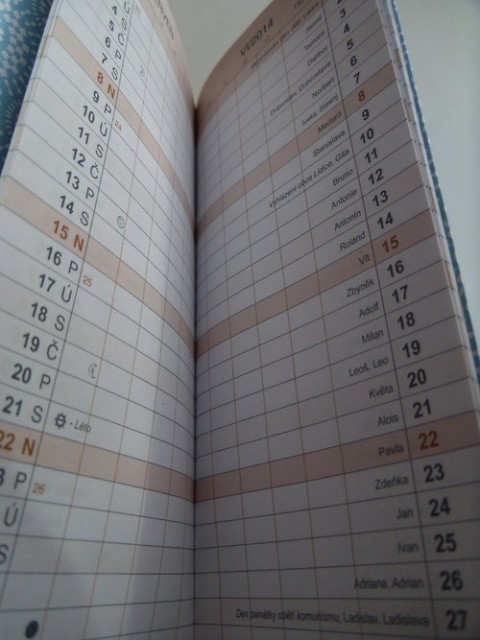 4 Ú
5 Č
6 P
7 S
8 N
9 P 24
10 Ú
11 S
12 Č
13 P
14 S
15 N
16 P 25
17 Ú
18 S
19 Č
20 P
21 S - Léto
22 N
P 26
Ú
S
VI/2014
3
4
Tamara 5
Dalibor 6
Dobroslav, Dobroslava 7
Norbert
Iveta, Slavoj 8
Medard 9
Stanislava 10
Vyhlazení obce Lidice, Gita 11
Bruno 12
Antonie 13
Antonín 14
Roland 15
Vít 16
Zbyněk 17
Adolf 18
Milan 19
Leoš, Leo 20
Květa 21
Alois 22
Pavla 23
Zdeňka 24
Jan 25
Ivan 26
Adriana, Adrian 27
Den památky obětí komunismu, Ladislav, Ladislava